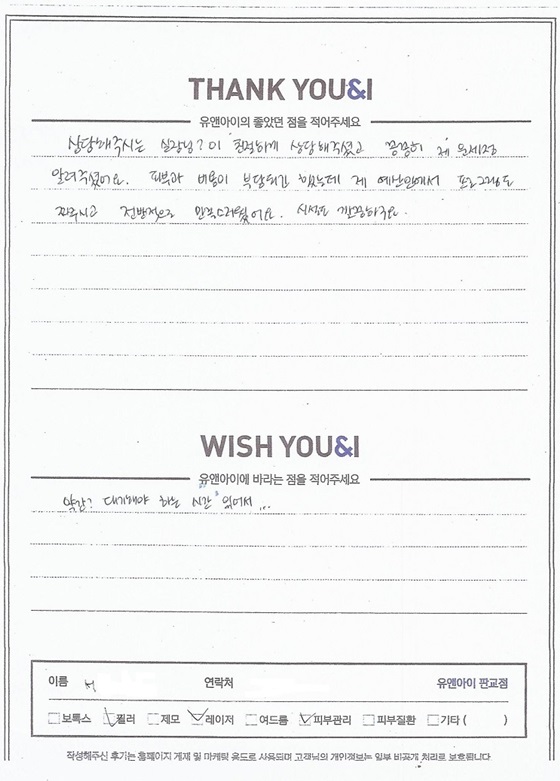 THANK YOU&I
유앤아이의 좋았던 점을 적어주세요
상담해주시는 실장님?이 친절하게 상담해주셨고 꼼꼼히 제
알려주셨어요. 피부과 비용이 부담되긴 했는데 제 예산안에서 프로그램도
짜주시고 전반적으로 만족스러웠어요. 시설도 깔끔하구요.
WISH YOU&I
유앤아이에 바라는 점을 적어주세요
약간? 대기해야 하는 시간 있어서...
이름 서 연락처 유앤아이 판교점
보톡스 필러 제모 레이저 여드름 피부관리 피부질환 기타 ( )
작성해주신 후기는 홈페이지 게재 및 마케팅 용도로 사용되며 고객님의 개인정보는 일부 비공개 처리로 보호됩니다